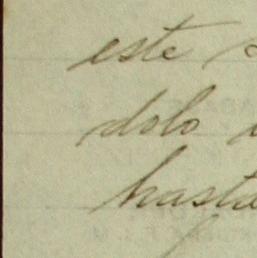 este
dolo
hasta